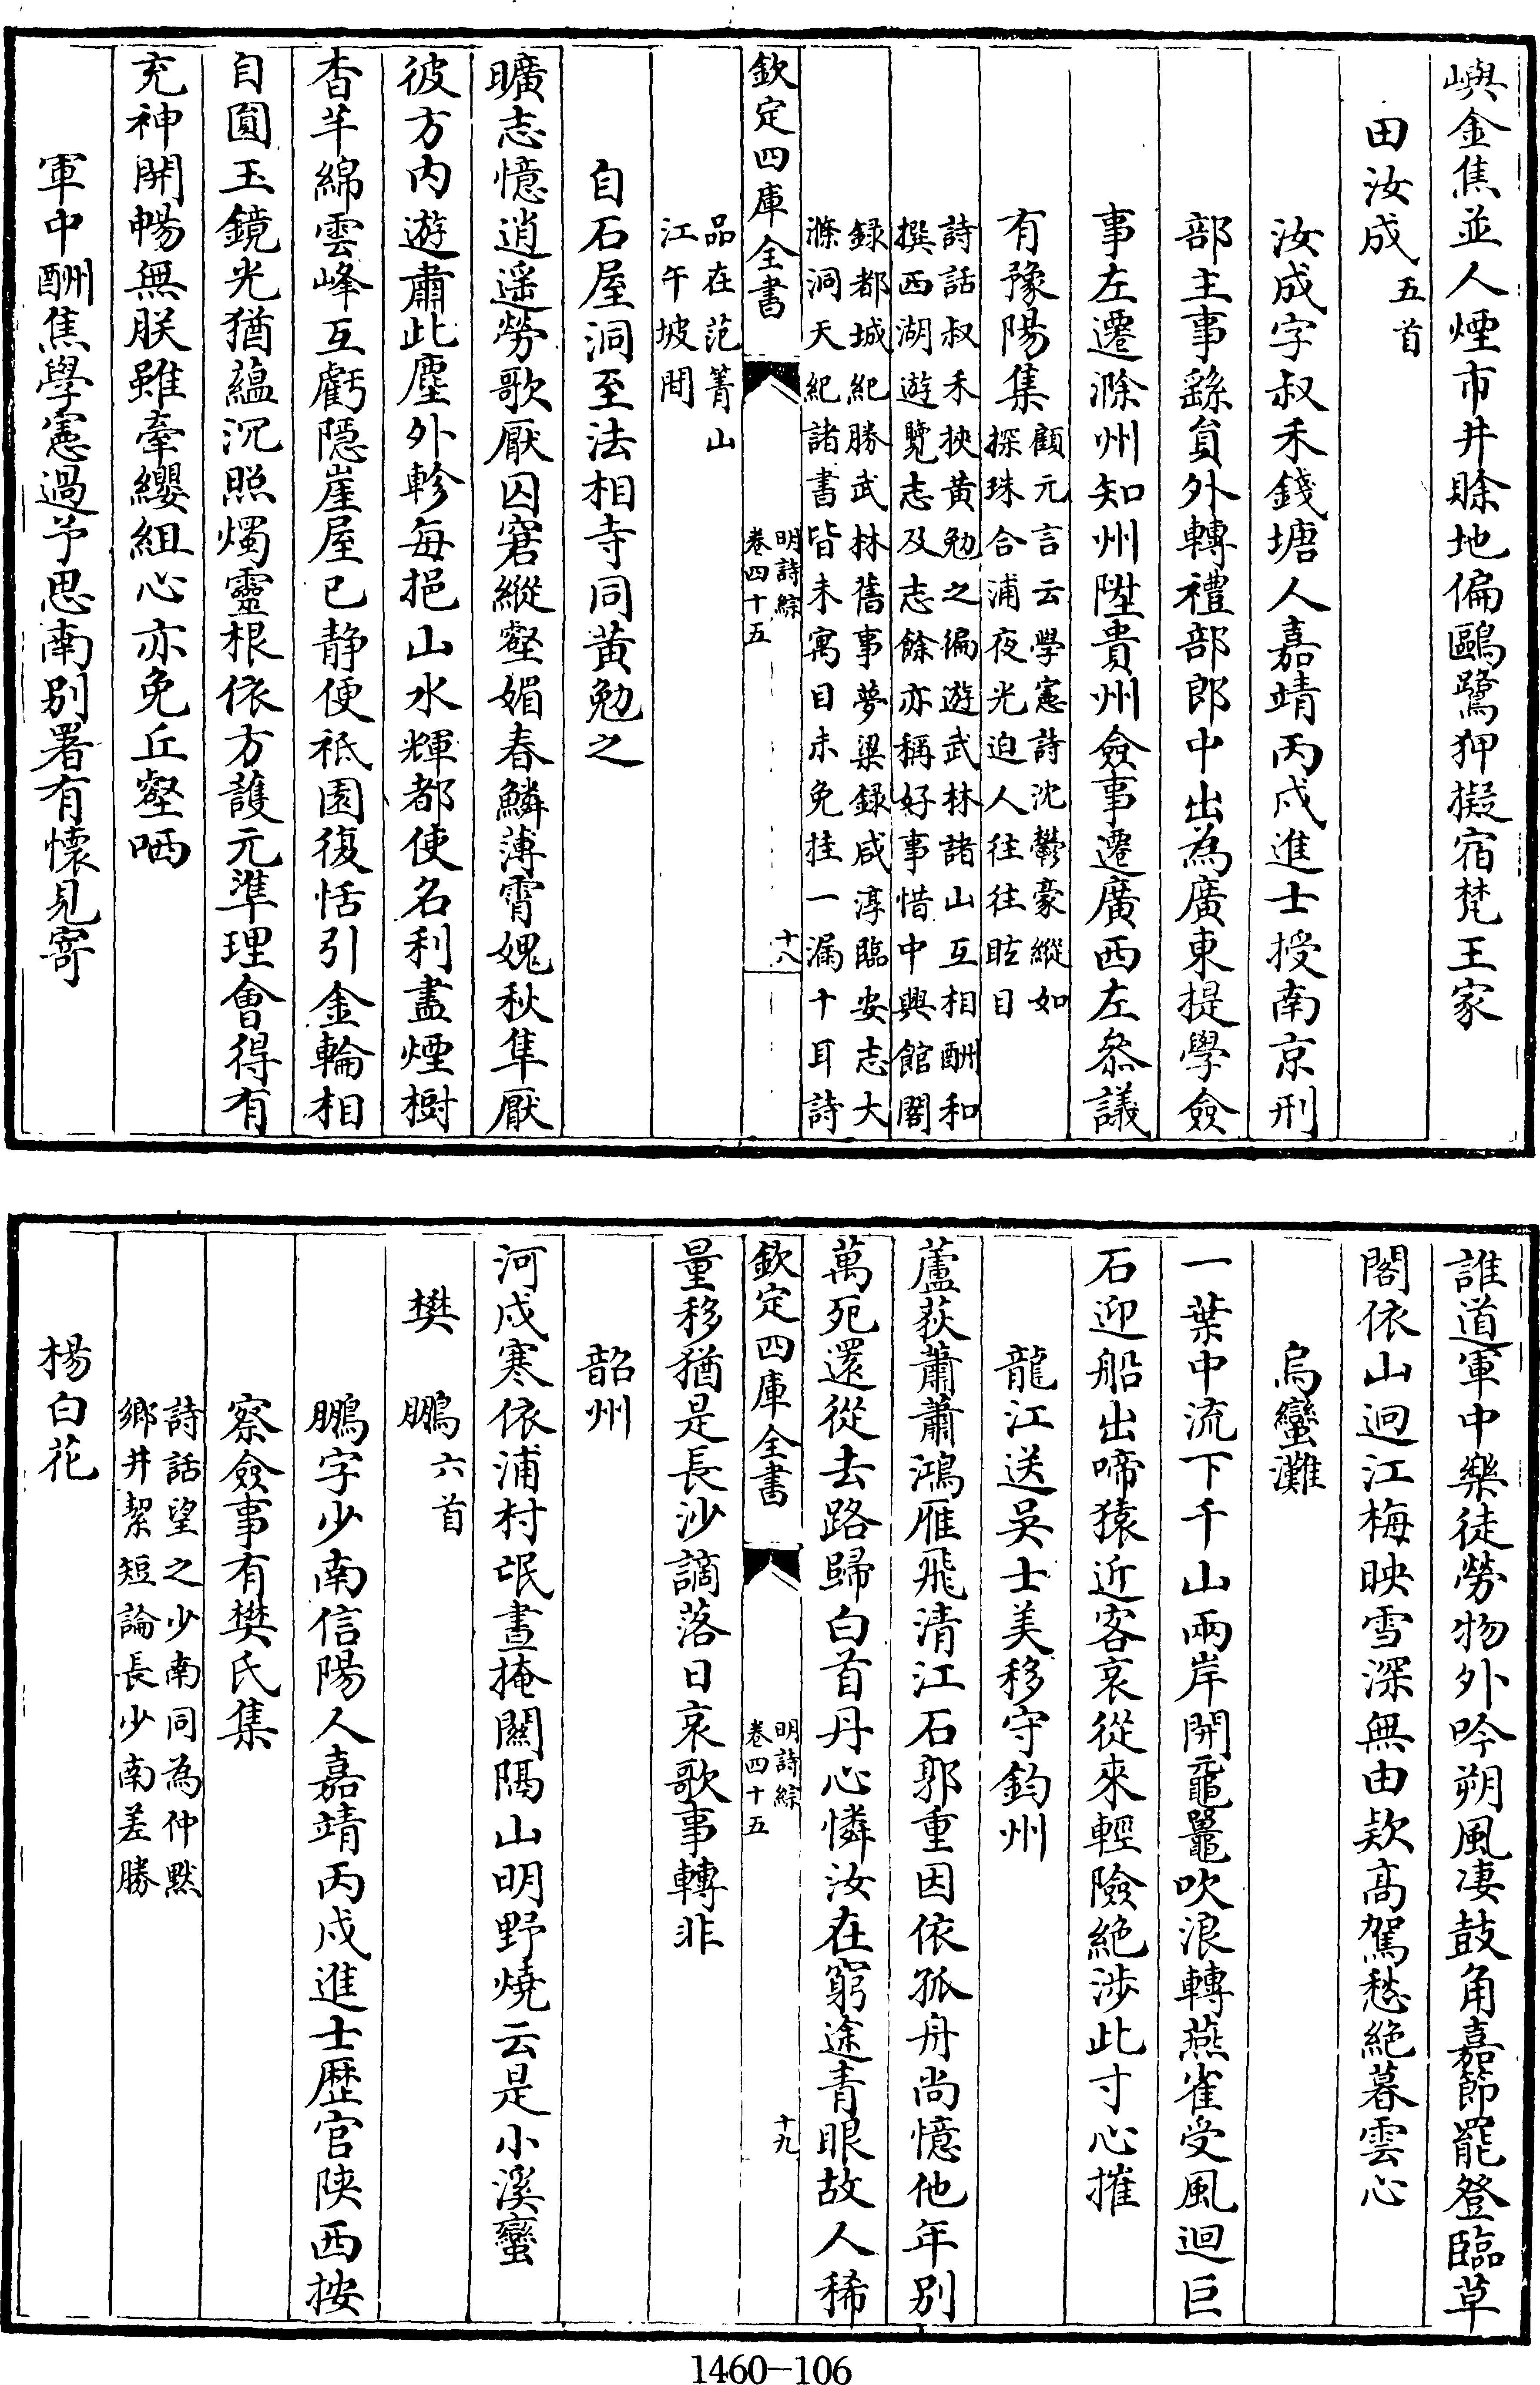 嶼金焦並人煙市井賖地偏鷗鷺狎擬宿梵王家
田汝成五首
汝成字叔禾錢塘人嘉靖丙戍進士授南京刑
部主事繇貟外轉禮部郎中出為廣東提學僉
事左遷滁州知州陞貴州僉事遷廣西左叅議
有豫陽集顧元言云學憲詩沈鬱豪縱如
探珠合浦夜光迫人往往眩目
詩話叔禾挾黄勉之徧遊武林諸山互相酬和
撰西湖遊覽志及志餘亦稱好事惜中興館閣
録都城紀勝武林舊事夢粱録咸淳臨安志大
滌洞天紀諸書皆未寓目未免挂一漏十耳詩
欽定四庫全書
明詩綜
卷四十五
十八
品在范菁山
江午坡間
自石屋洞至法相寺同黄勉之
曠志憶逍遥勞歌厭囚窘縱壑媚春鱗薄霄媿秋隼厭
彼方内遊肅此塵外軫每挹山水輝都使名利盡煙樹
杳芊綿雲峰互虧隠崖屋已静便祗園復恬引金輪相
自圓玉鏡光猶藴沉照燭靈根依方䕶元準理會得有
充神開暢無朕雖牽纓組心亦免丘壑哂
軍中酬焦學憲過予思南别署有懐見寄
誰道軍中樂徒勞物外吟朔風凄鼓角嘉節罷登臨草
閣依山迥江梅映雪深無由欵髙駕愁絶暮雲心
烏蠻灘
一葉中流下千山兩岸開黿鼉吹浪轉燕雀受風迴巨
石迎船出啼猿近客哀從來輕險絶涉此寸心摧
龍江送吳士美移守鈞州
蘆荻蕭蕭鴻雁飛清江石郭重因依孤舟尚憶他年别
萬死還從去路歸白首丹心憐汝在窮途青眼故人稀
欽定四庫全書
明詩綜
卷四十五
十九
量移猶是長沙謫落日哀歌事轉非
韶州
河戍寒依浦村氓晝掩闗隔山明野燒云是小溪蠻
樊鵬六首
鵬字少南信陽人嘉靖丙戍進士歴官陜西按
察僉事有樊氏集
詩話望之少南同為仲黙
鄉井絜短論長少南差勝
楊白花
1460-106